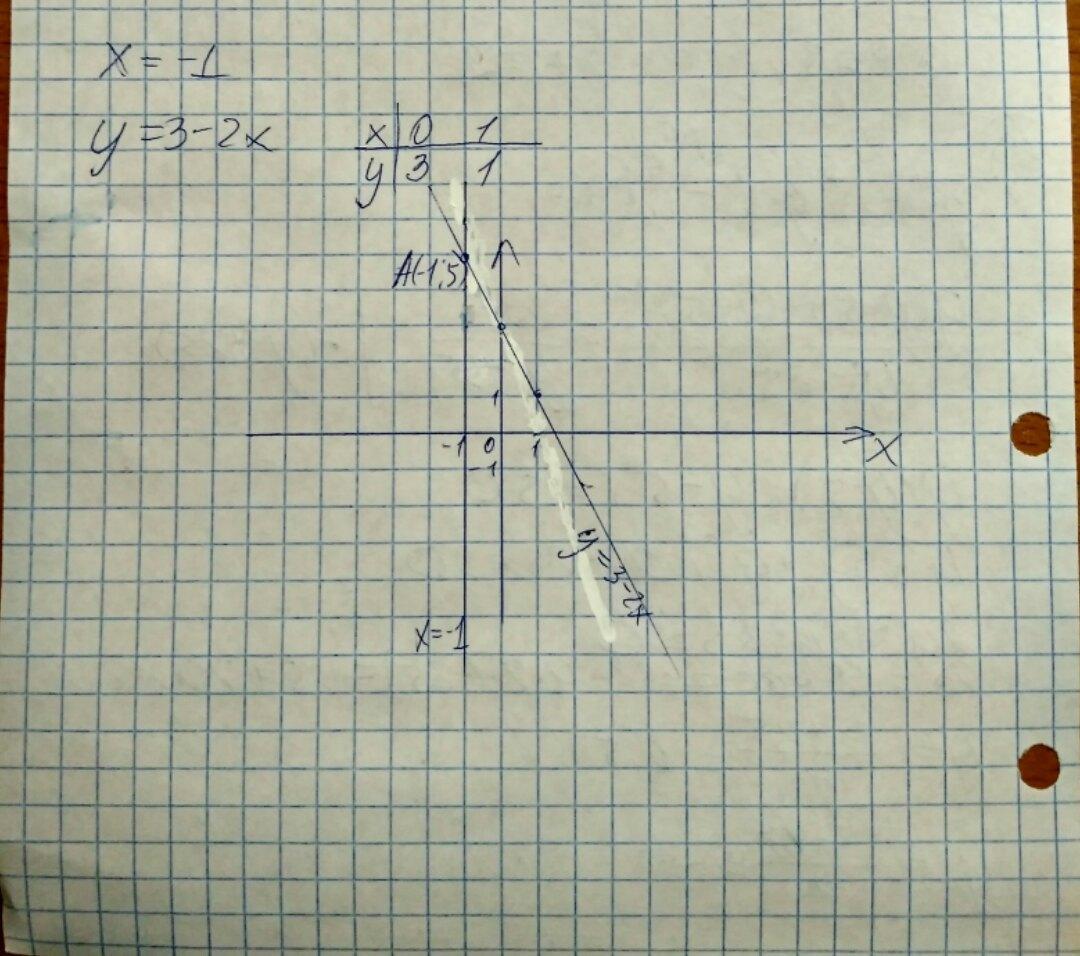 x = -1
y = 3 - 2x
x | 0 1
y | 3 1
A(-1;5)
1
-1 0 1 X
-1
y = 3 - 2x
x = -1